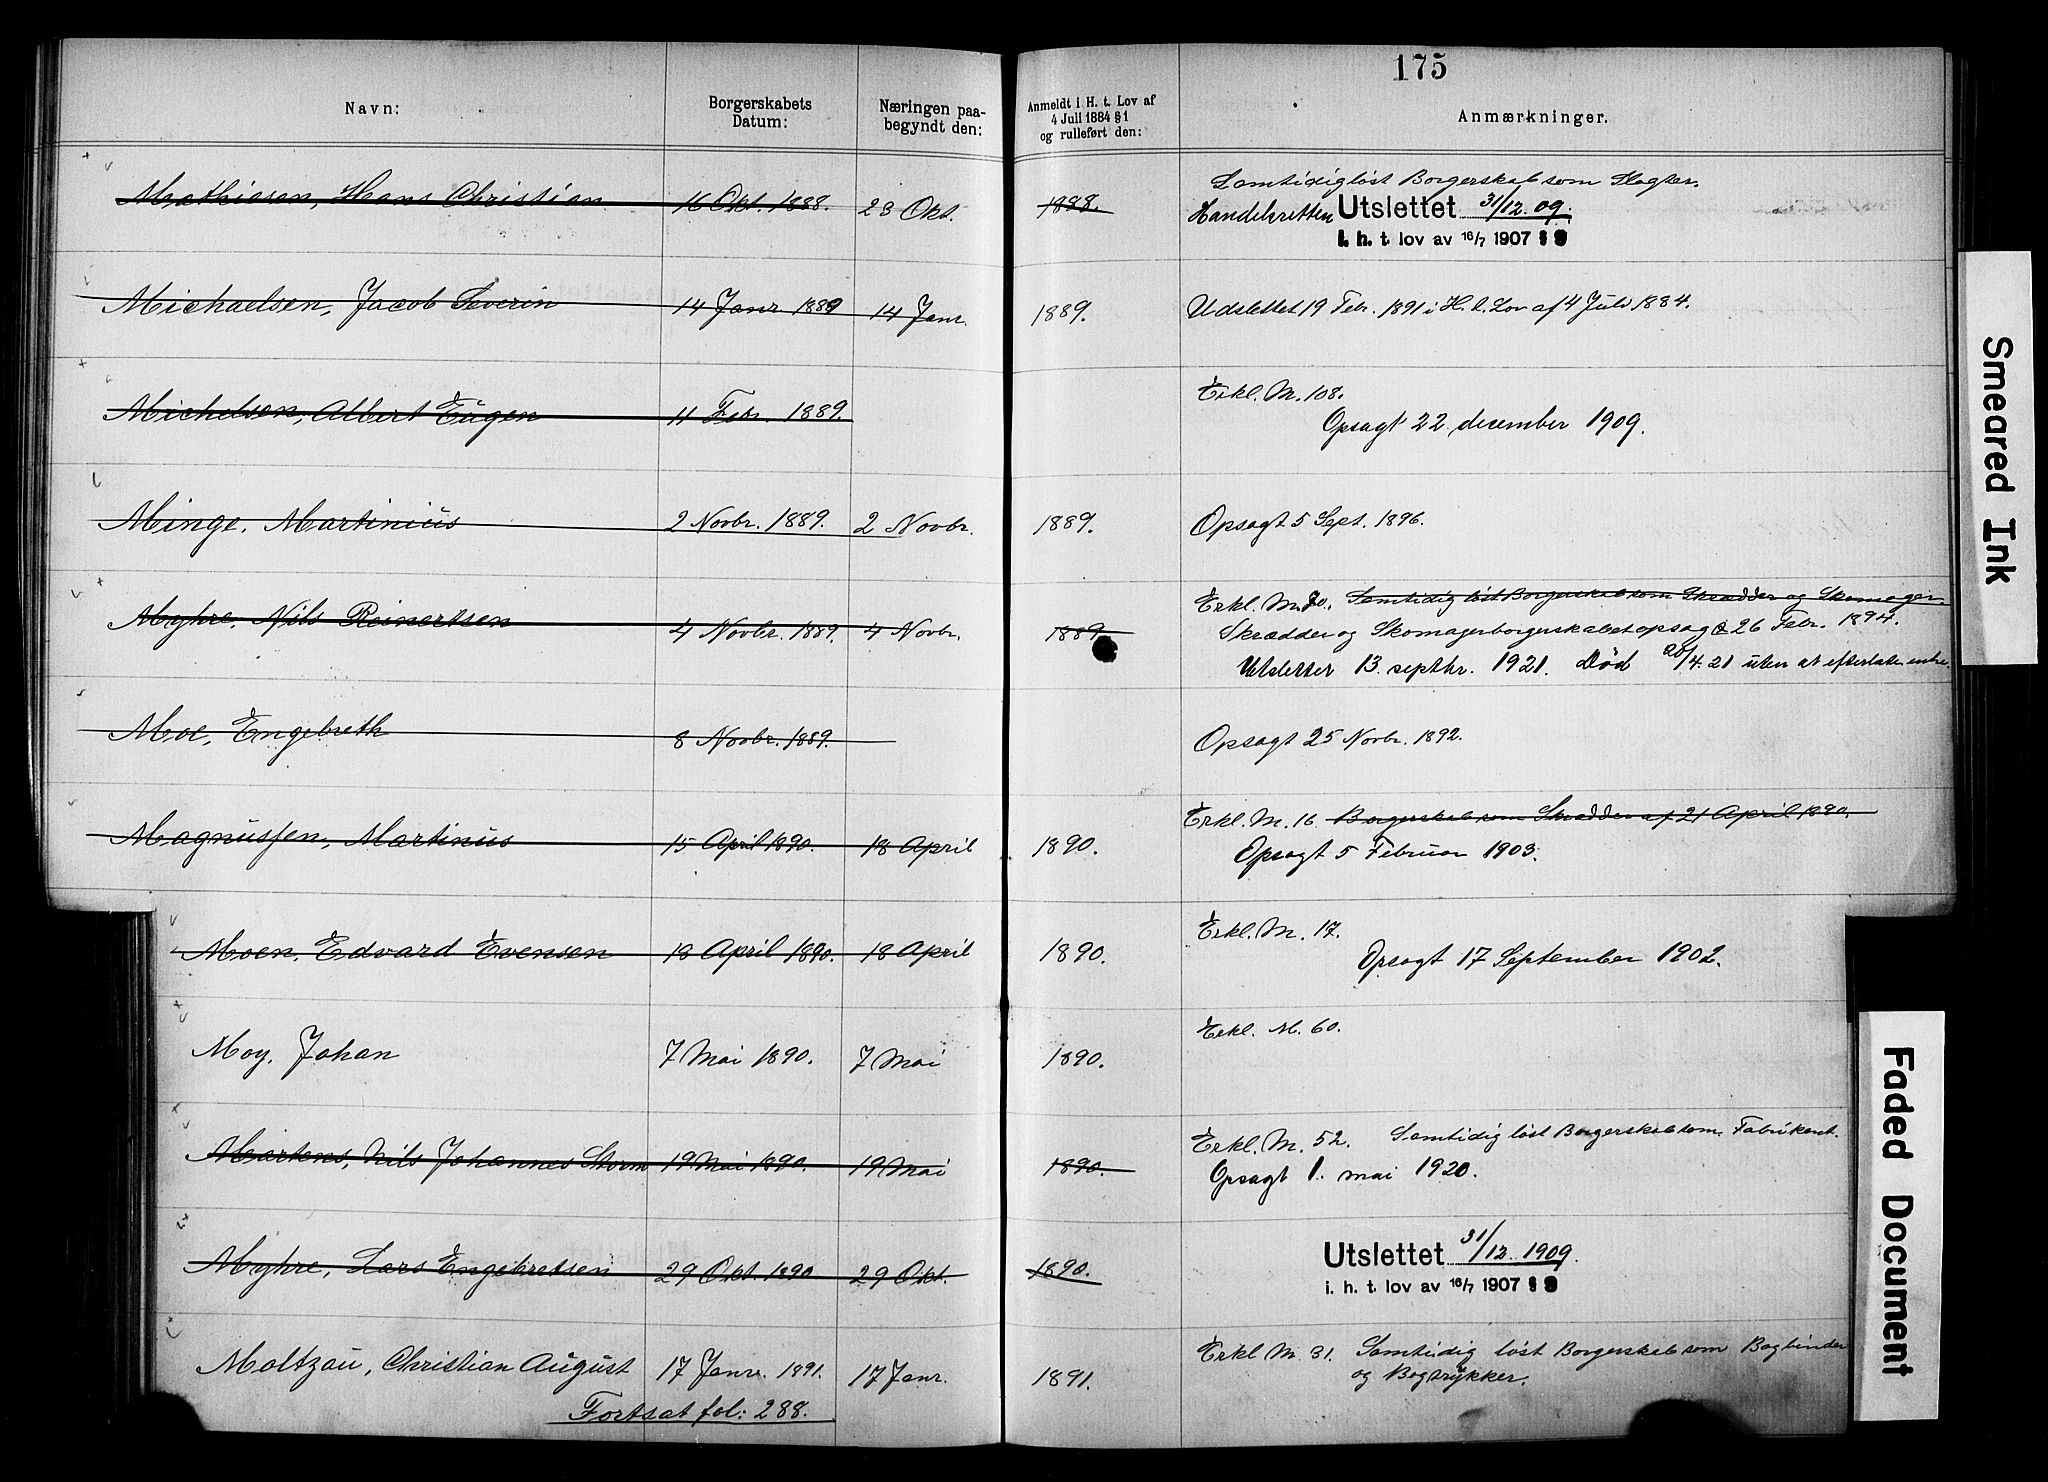 175
Navn: Borgerskabets Datum: Næringen paabegyndt den: Anmeldt i H. t. Lov af 4 Juli 1884 § 1 og rulleført den: Anmærkninger.
Samtidig løst Borgerskab som Slagter.
Mathiasen, Hans Christian 16 Okt. 1888. 23 Okt. 1888. Handelsretten Utslettet 31/12 09.
i. h. t. lov av 16/7 1907 § 9
Michaelsen, Jacob Severin 14 Janr 1889 14 Janr. 1889. Udslettet 19 Febr. 1891 i H. t. Lov af 4 Juli 1884.
Erkl. M. 108.
Michelsen, Albert Eugen 11 Febr. 1889. Opsagt 22. december 1909.
Minge, Martinius 2 Novbr. 1889. 2 Novbr. 1889. Opsagt 5 Sept. 1896.
Erkl. M. 70. Samtidig løst Borgerskab som Skrædder og Skomager.
Myhre, Nils Reinertsen 4 Novbr. 1889. 4 Novbr. 1889 Skrædder og Skomagerborgerskabet opsagt 26 Febr. 1894.
Utslettet 13. septbr. 1921. Død 20/4.21 uten at efterlate enke.
Moe, Engebreth 8 Novbr. 1889. Opsagt 25 Novbr. 1892.
Erkl. M. 16. Borgerskab som Skrædder af 21 April 1890.
Magnussen, Martinius 15 April 1890. 18 April 1890. Opsagt 5 Februar 1903.
Erkl. M. 17.
Moen, Edvard Evensen 18 April 1890. 18 April 1890. Opsagt 17 September 1902.
Erkl. M. 60.
Moy, Johan 7 Mai 1890. 7 Mai 1890.
Erkl. M. 52. Samtidig løst Borgerskab som Fabrikant.
Martens, Nils Johannes Storm 19 Mai 1890. 19 Mai 1890. Opsagt 1. mai 1920.
Myhre, Lars Engebretsen 29 Okt. 1890 29 Okt. 1890. Utslettet 31/12 1909.
i. h. t. lov av 16/7 1907 § 9
Moltzau, Christian August 17 Janr. 1891. 17 Janr. 1891. Erkl M. 31. Samtidig løst Borgerskab som Bogbinder
og Bogtrykker.
Fortsat fol: 288.
Smeared Ink
Faded Document